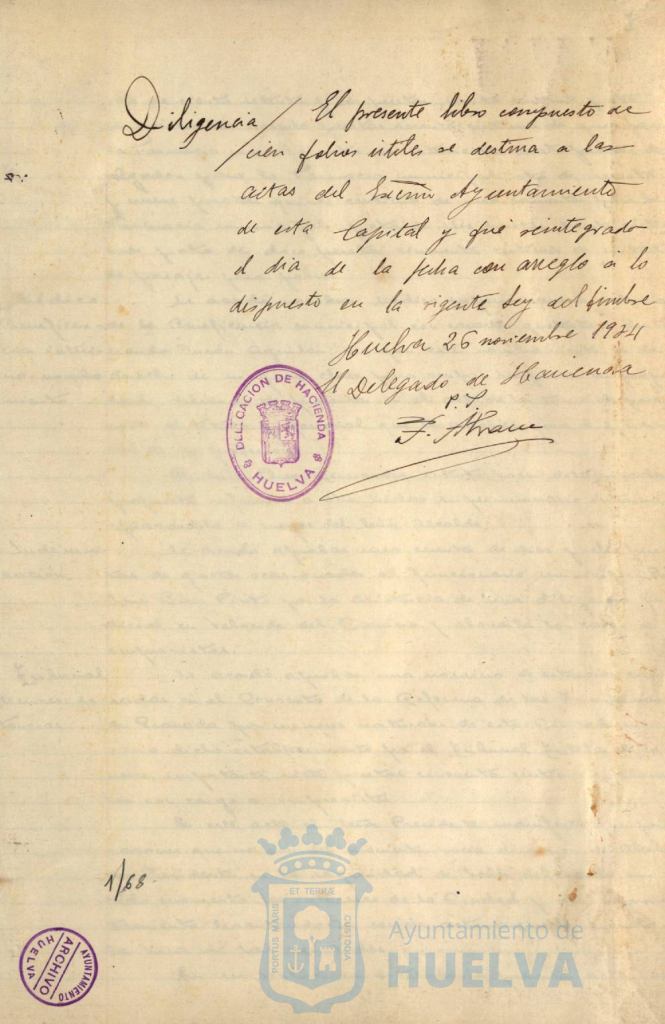 Diligencia / El presente libro compuesto de
cien folios útiles se destina a las
actas del Excmo Ayuntamiento
de esta Capital y fué reintegrado
el dia de la fecha con arreglo á lo
dispuesto en la vigente Ley del timbre
Huelva 26 noviembre 1924
El Delegado de Hacienda
F.
DELEGACION DE HACIENDA
HUELVA
1/68
ET TERRÆ
PORTUS MARIS
CUSTODIA
Ayuntamiento de
HUELVA
AYUNTAMIENTO
ARCHIVO
HUELVA